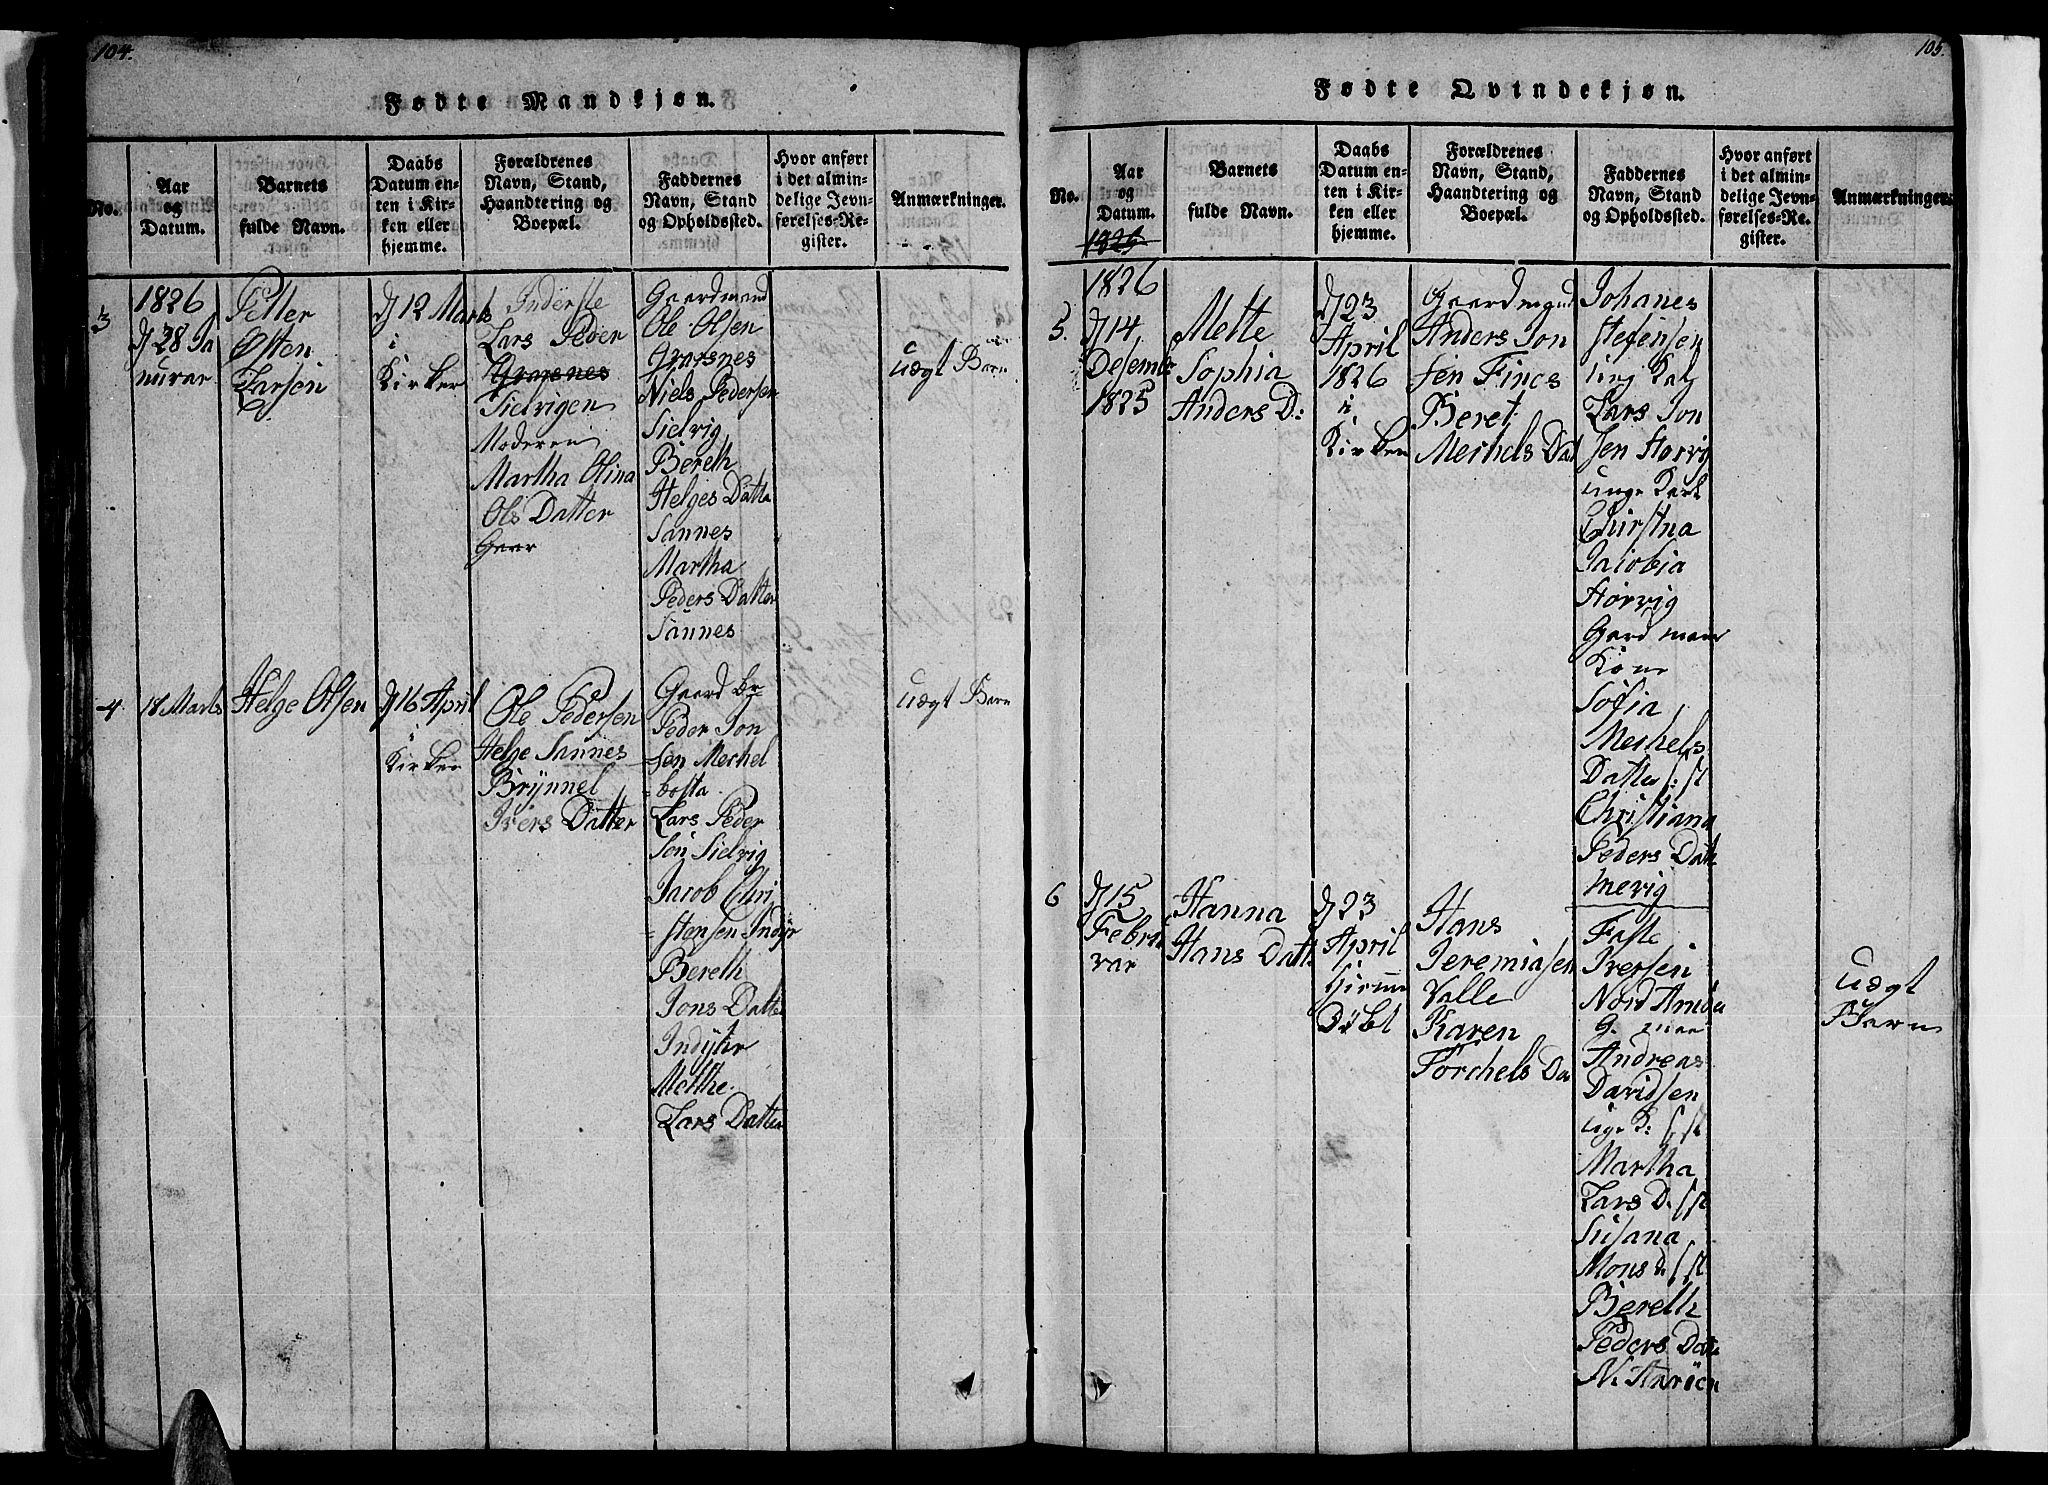 104.
Fødte Mandkjøn.
No.
Aar
og
Datum.
Barnets
fulde Navn.
Daabs
Datum en-
ten i Kir-
ken eller
hjemme.
Forældrenes
Navn, Stand,
Haandtering og
Boepæl.
Faddernes
Navn, Stand
og Opholdssted.
Hvor anført
i det almin-
delige Jevn-
førelses-Re-
gister.
Anmærkninger.
3
1826
D 28 Ja
nuvar
Petter
Osten
Larsen
D 12 Marts
i
Kirken
Inderste
Lars Peder
Grasnes
Sielvigen
Moderen
Martha Olina
Ols Datter
Gaar
Gaardmand
Ole Olsen
Grasnes
Niels Pedersen
Sielvig
Bereth
Helges Datter
Sannes
Martha
Peders Datter
Sannes
uægt Barn
4
18 Marts
Helge Olsen
D 16 April
i
Kirken
Ole Pedersen
Helge Sannes
Brynnel
Ivers Datter
Gaard br
Peder Jon
sen Mechel
bosta
Lars Peder
Sen Sielvig
Jacob Chri
stensen Indyr
Bereth
Jons Datter
Indyhr
Methe
Lars Datter
uægt Barn
105.
Fødte Qvindekjøn.
No.
Aar
og
Datum.
Barnets
fulde Navn.
Daabs
Datum en-
ten i Kir-
ken eller
hjemme.
Forældrenes
Navn, Stand,
Haandtering og
Boepæl.
Faddernes
Navn, Stand
og Opholdssted.
Hvor anført
i det almin-
delige Jevn-
førelses-Re-
gister.
Anmærkninger.
1825
1826
5.
D 14
Desembr
1825
Mette
Sophia
Anders D:
D 23
April
1826
i
Kirken
Gaardmand
Anders Jon
sen Fines
Beret
Mechels Dat
Johanes
Stefensen
ung Kal
Lars Jon
sen Storvig
unge Karl
Chirstna
Jacobia
Storvig
Gard man
Kone
Sofia
Mechels
Datter /: st
Christiana
Peders Datt
Mevig
6
D 15
Febru
var
Hanna
Hans Datt
D 23
April
Hiemme
Døbt
Hans
Jeremiasen
Valle
Karen
Torchels Da
Falle
Iversen
Nord Arnøen
G. man
Andreas
Davidsen
uge K: / st
Martha
Lars D. / st
Susana
Mons D. / st
Bereth
Peders Dat
N. Arnöen
uægt
Barn